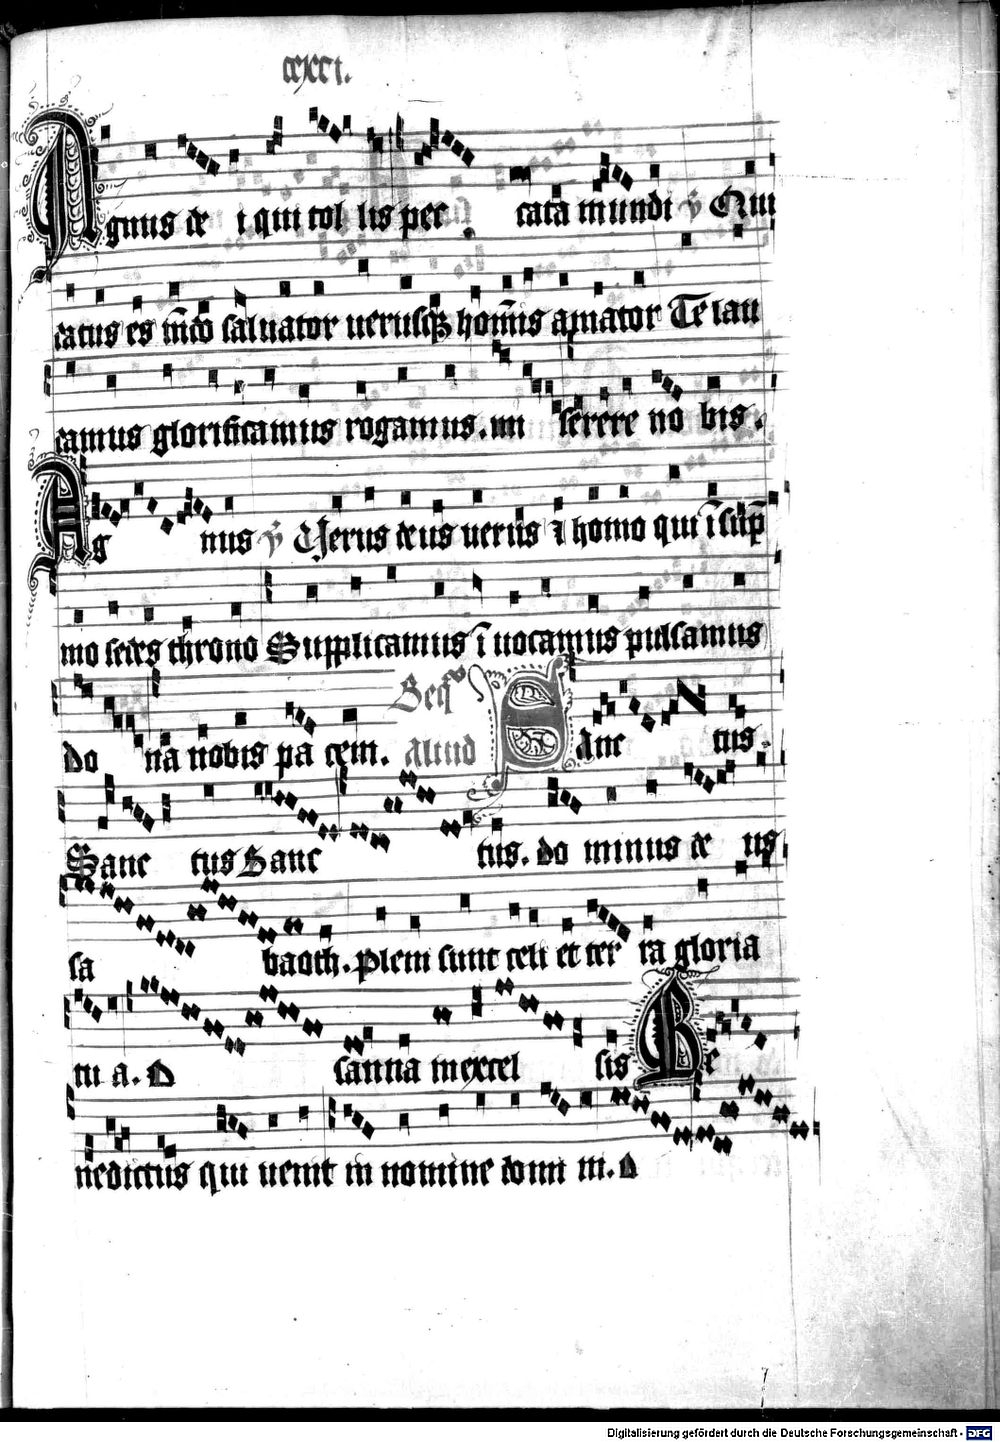 Agnus de i qui tol lis pec cata mundi ℣ Qui
catus es m̄do saluator uerusq̄ꝫ hom̄is amator Te lau
damus glorificamus rogamus. mi serere no bis.
Ag nus ℣ Uerus deus uerus ⁊ homo qui ī sup̄
mo sedes throno Supplicamus ī uocamus pulsamus
do na nobis pa cem. Aliud Seq̄ Sanc tus.
Sanc tus Sanc tus. do minus de us
sa baoth. pleni sunt celi et ter ra gloria
tu a. O sanna in excel sis Be
nedictus qui uenit in nomine domi ni. O
Digitalisierung gefördert durch die Deutsche Forschungsgemeinschaft - DFG